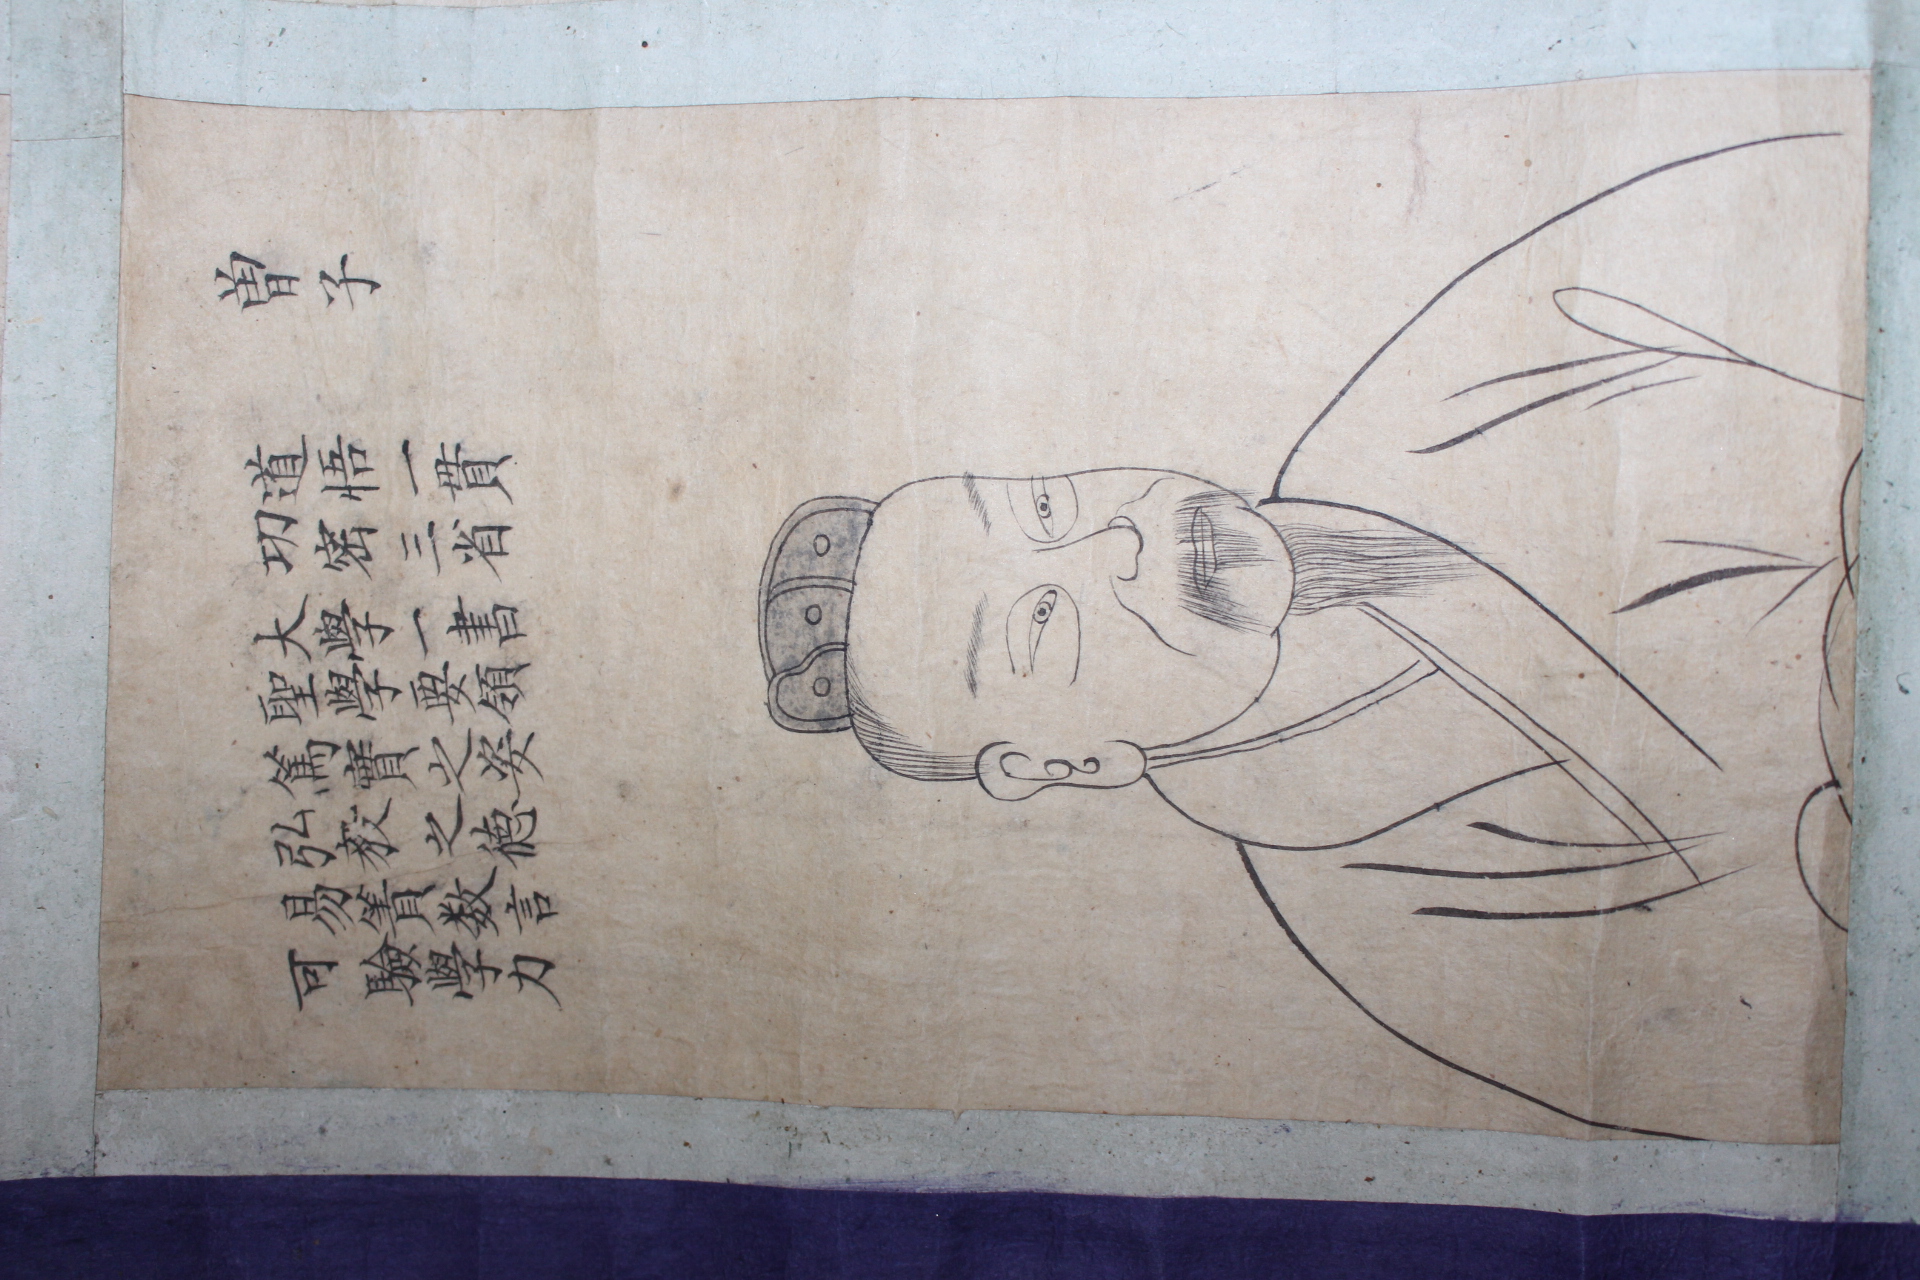 曾子
道悟一貫
功密三省
大學一書
聖學要領
篤實之姿
弘毅之德
易簀数言
可驗學力